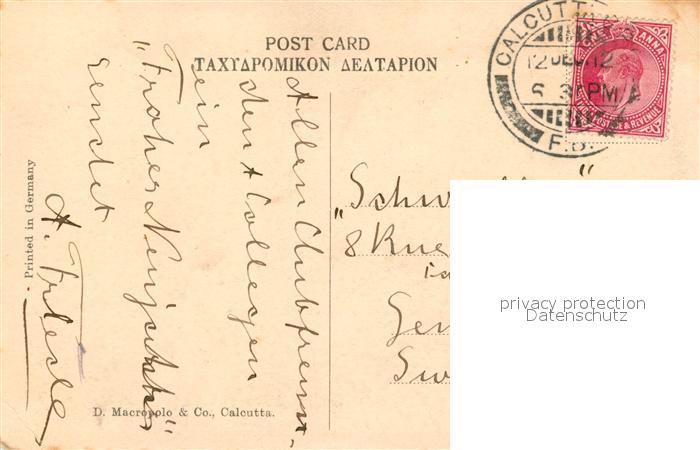 POST CARD
ΤΑΧΥΔΡΟΜΙΚΟΝ ΔΕΛΤΑΡΙΟΝ
CALCUTTA
12 DEC 12
5 30 PM
ONE ANNA
POSTAGE & REVENUE
Allen Clubfreun-
den & Collegen
ein
"Frohes Neujahr"
sendet
A.
"Schw
8 Rue
Gen
Sw
Printed in Germany
D. Macropolo & Co., Calcutta.
privacy protection
Datenschutz